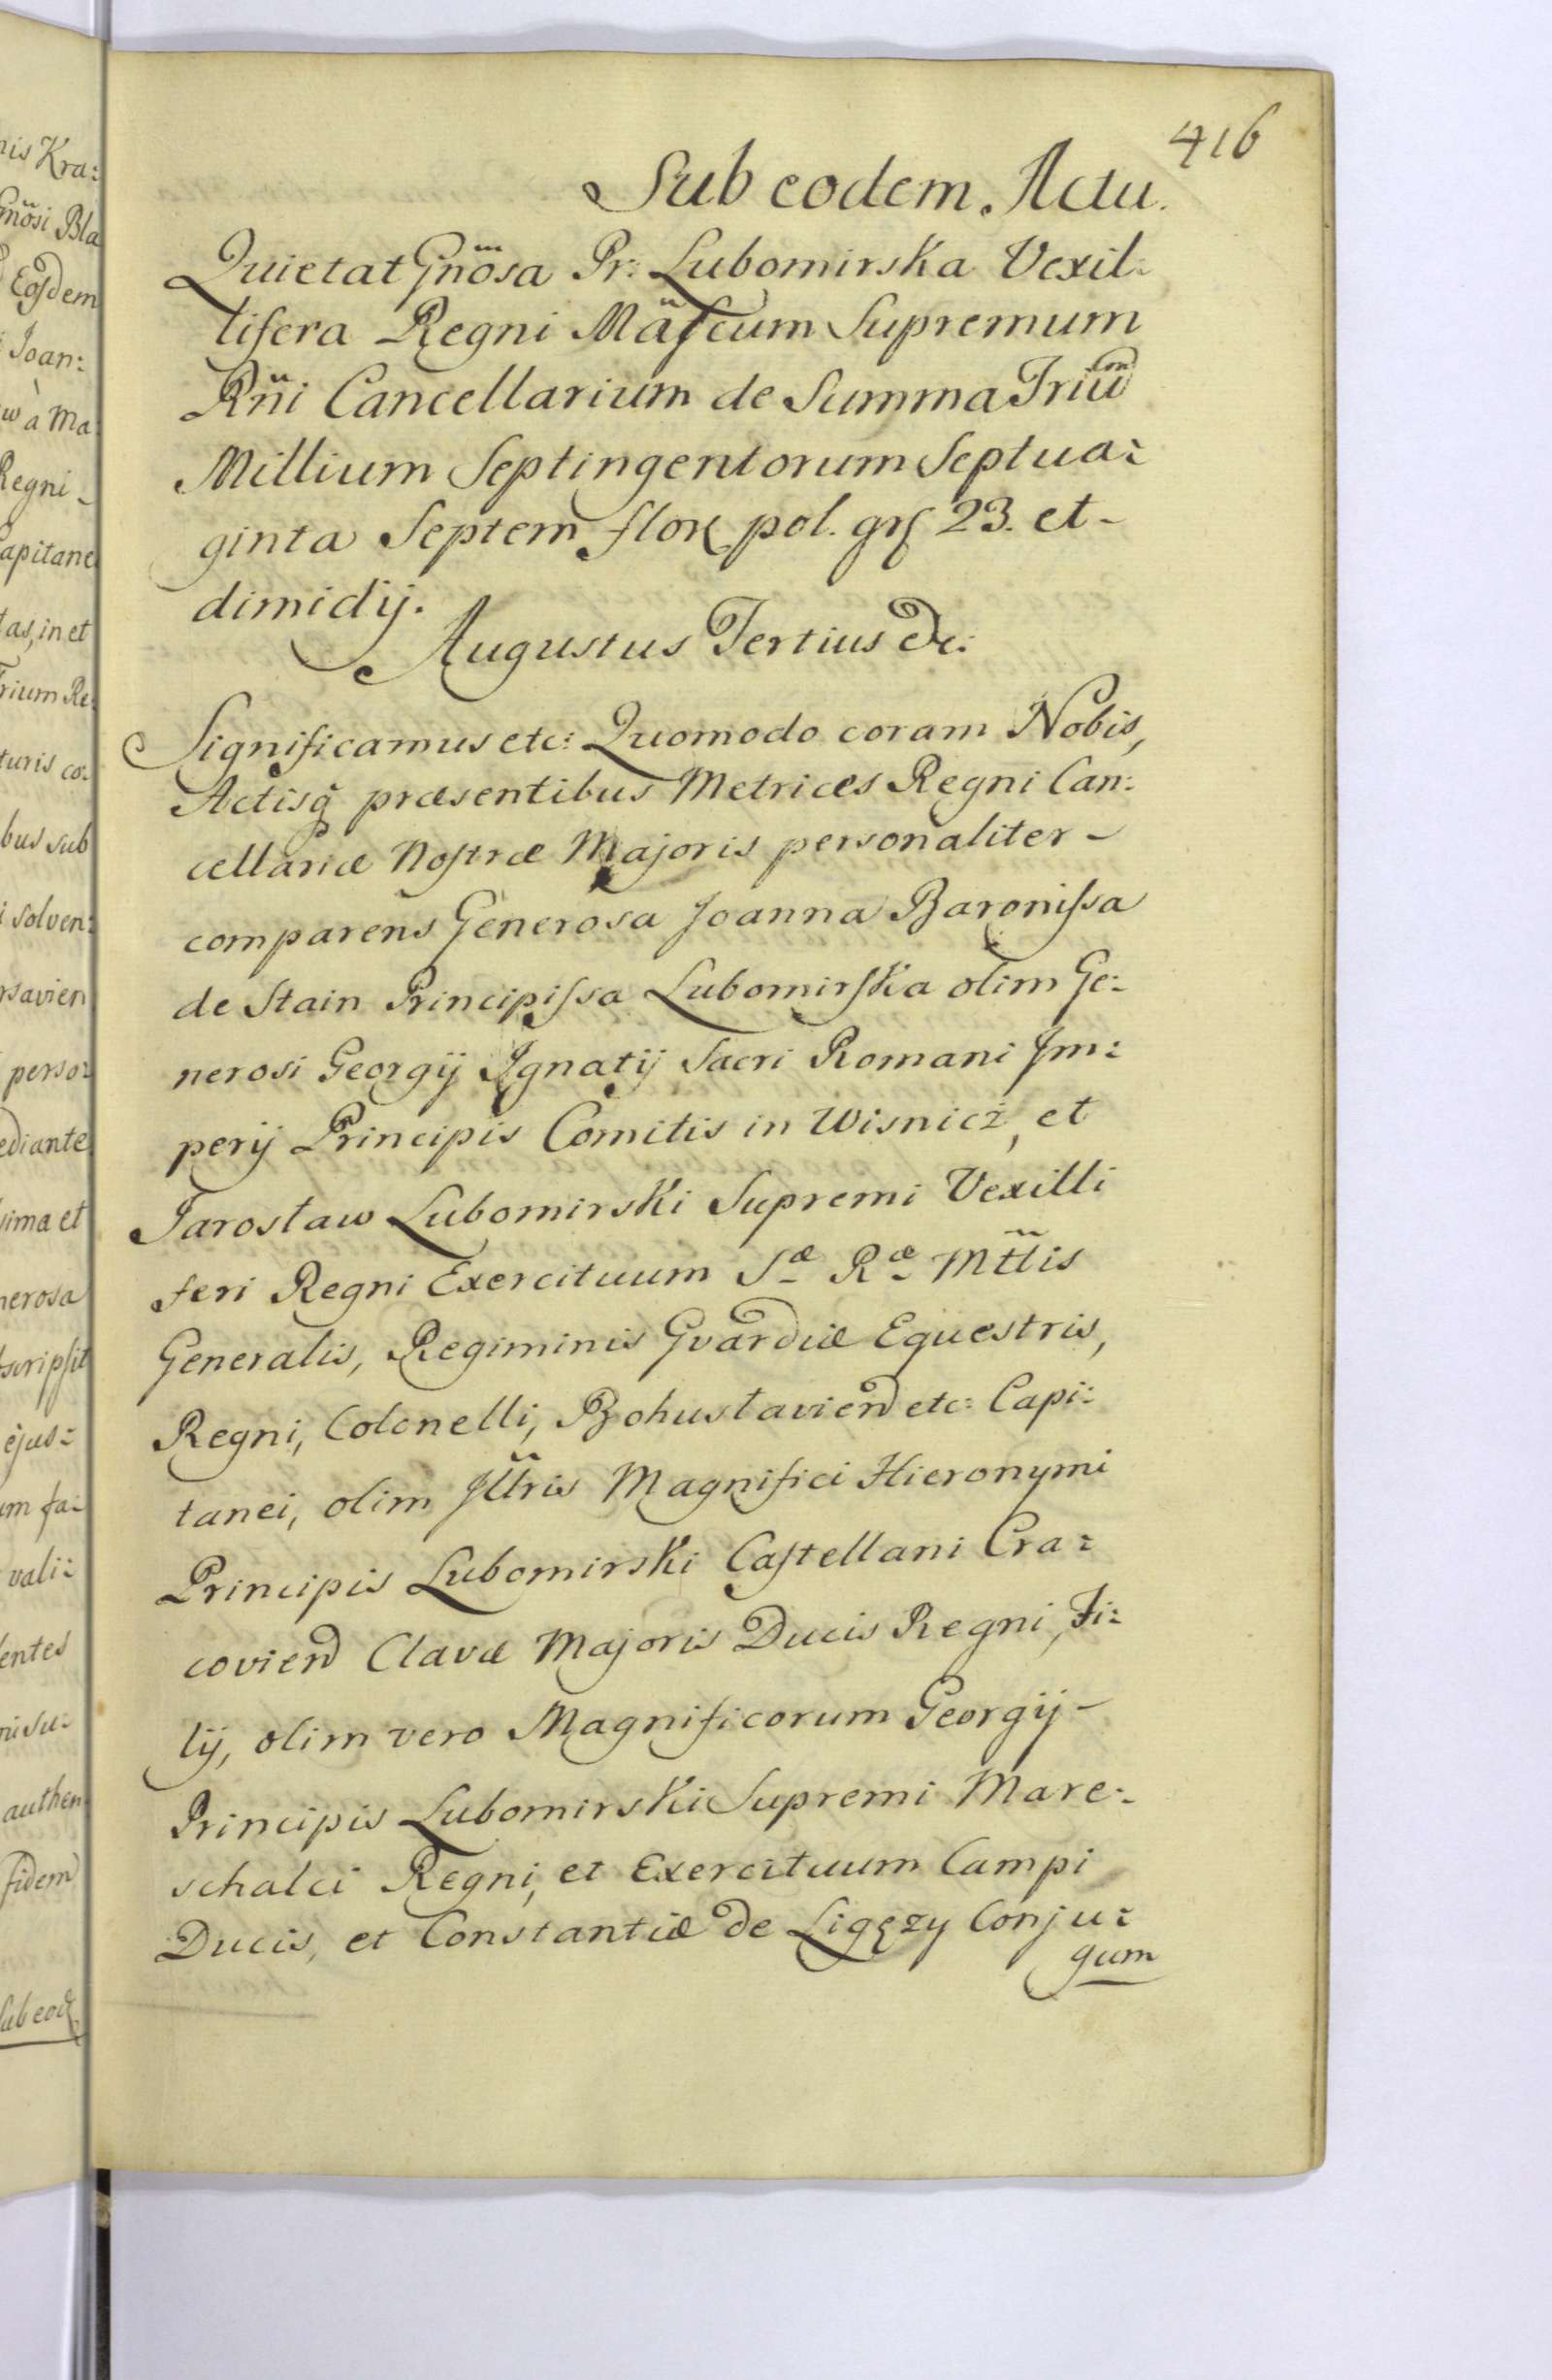 416
Sub eodem. Actu.
Quietat Gnosa Pr: Lubomirska Vexil:
lifera Regni Mäfcum Supremum
Rñi Cancellarium de Summa Triū
Millium Septingentorum Septua:
ginta Septem flor pol. grſ 23. et -
dimidij.
Augustus Tertius &c:
Significamus etc: Quomodo coram Nobis,
Actisq̨ præsentibus Metrices Regni Can:
cellariæ Noſtræ Majoris personaliter -
comparens Generosa Joanna Baroniſsa
de Stain Principiſsa Lubomirſka olim Ge:
nerosi Georgij Ignatij Sacri Romani Jm:
perij Principis Comitis in Wisnicż, et
Jarosław Lubomirski Supremi Vexilli
feri Regni Exercituum Sæ Ræ Mttis
Generalis, Regiminis Gvardiæ Equestris,
Regni, Colonelli, Bohusłavien etc: Capi:
tanei, olim Jllris Magnifici Hieronymi
Principis Lubomirski Caſtellani Cra:
covien Clavæ Majoris Ducis Regni, Fi:
lij, olim vero Magnificorum Georgij -
Principis Lubomirski Supremi Mare:
schalci Regni, et Exercituum Campi
Ducis, et Constantiæ de Ligęzy Conju:
gum
nis Kra:
Gnosi Bla
Eoſdem
Joan:
w à Ma
Regni -
apitane
tas, in et
Trium Re:
turis co:
bus sub
i solven:
rsavien
perso:
ediante
sima et
nerosa
bscripſit
ejus:
um fa:
vali:
entes
authen
fidem
Sub eod